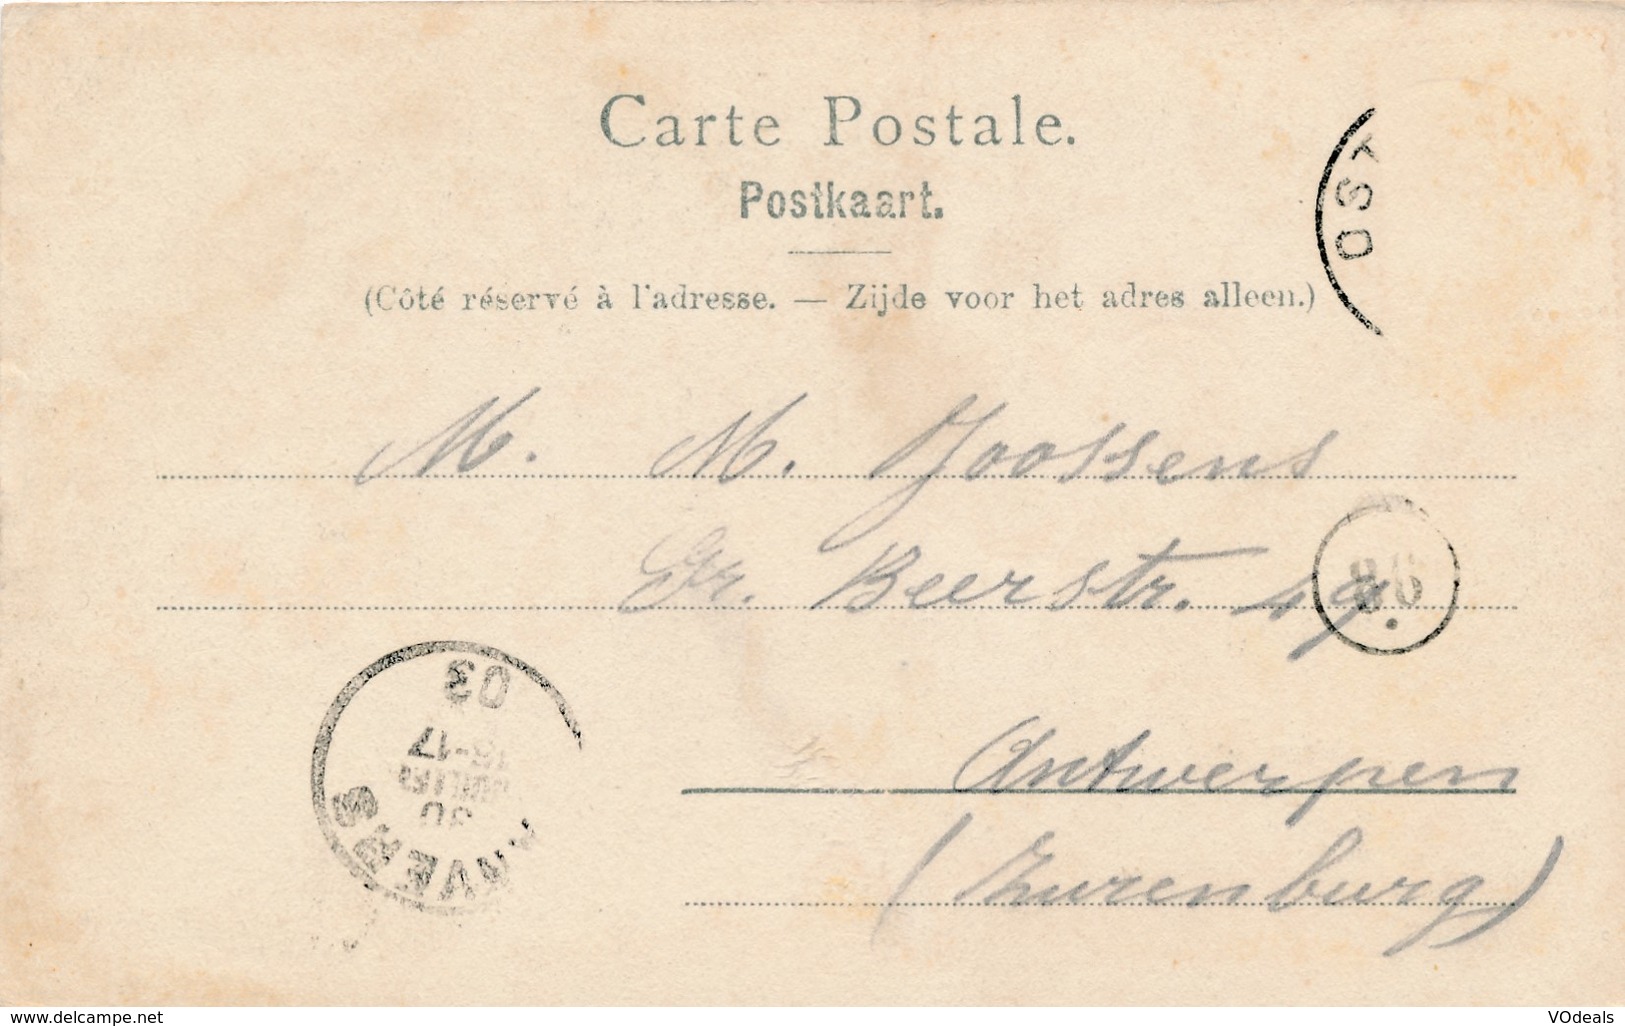 Carte Postale.
Postkaart.
(Côté réservé à l'adresse. — Zijde voor het adres alleen.)
OST
M. M. Joossens
Gr. Beerstr. 49
Antwerpen
(Zurenburg)
03
17
30
ANVERS
www.delcampe.net
VOdeals